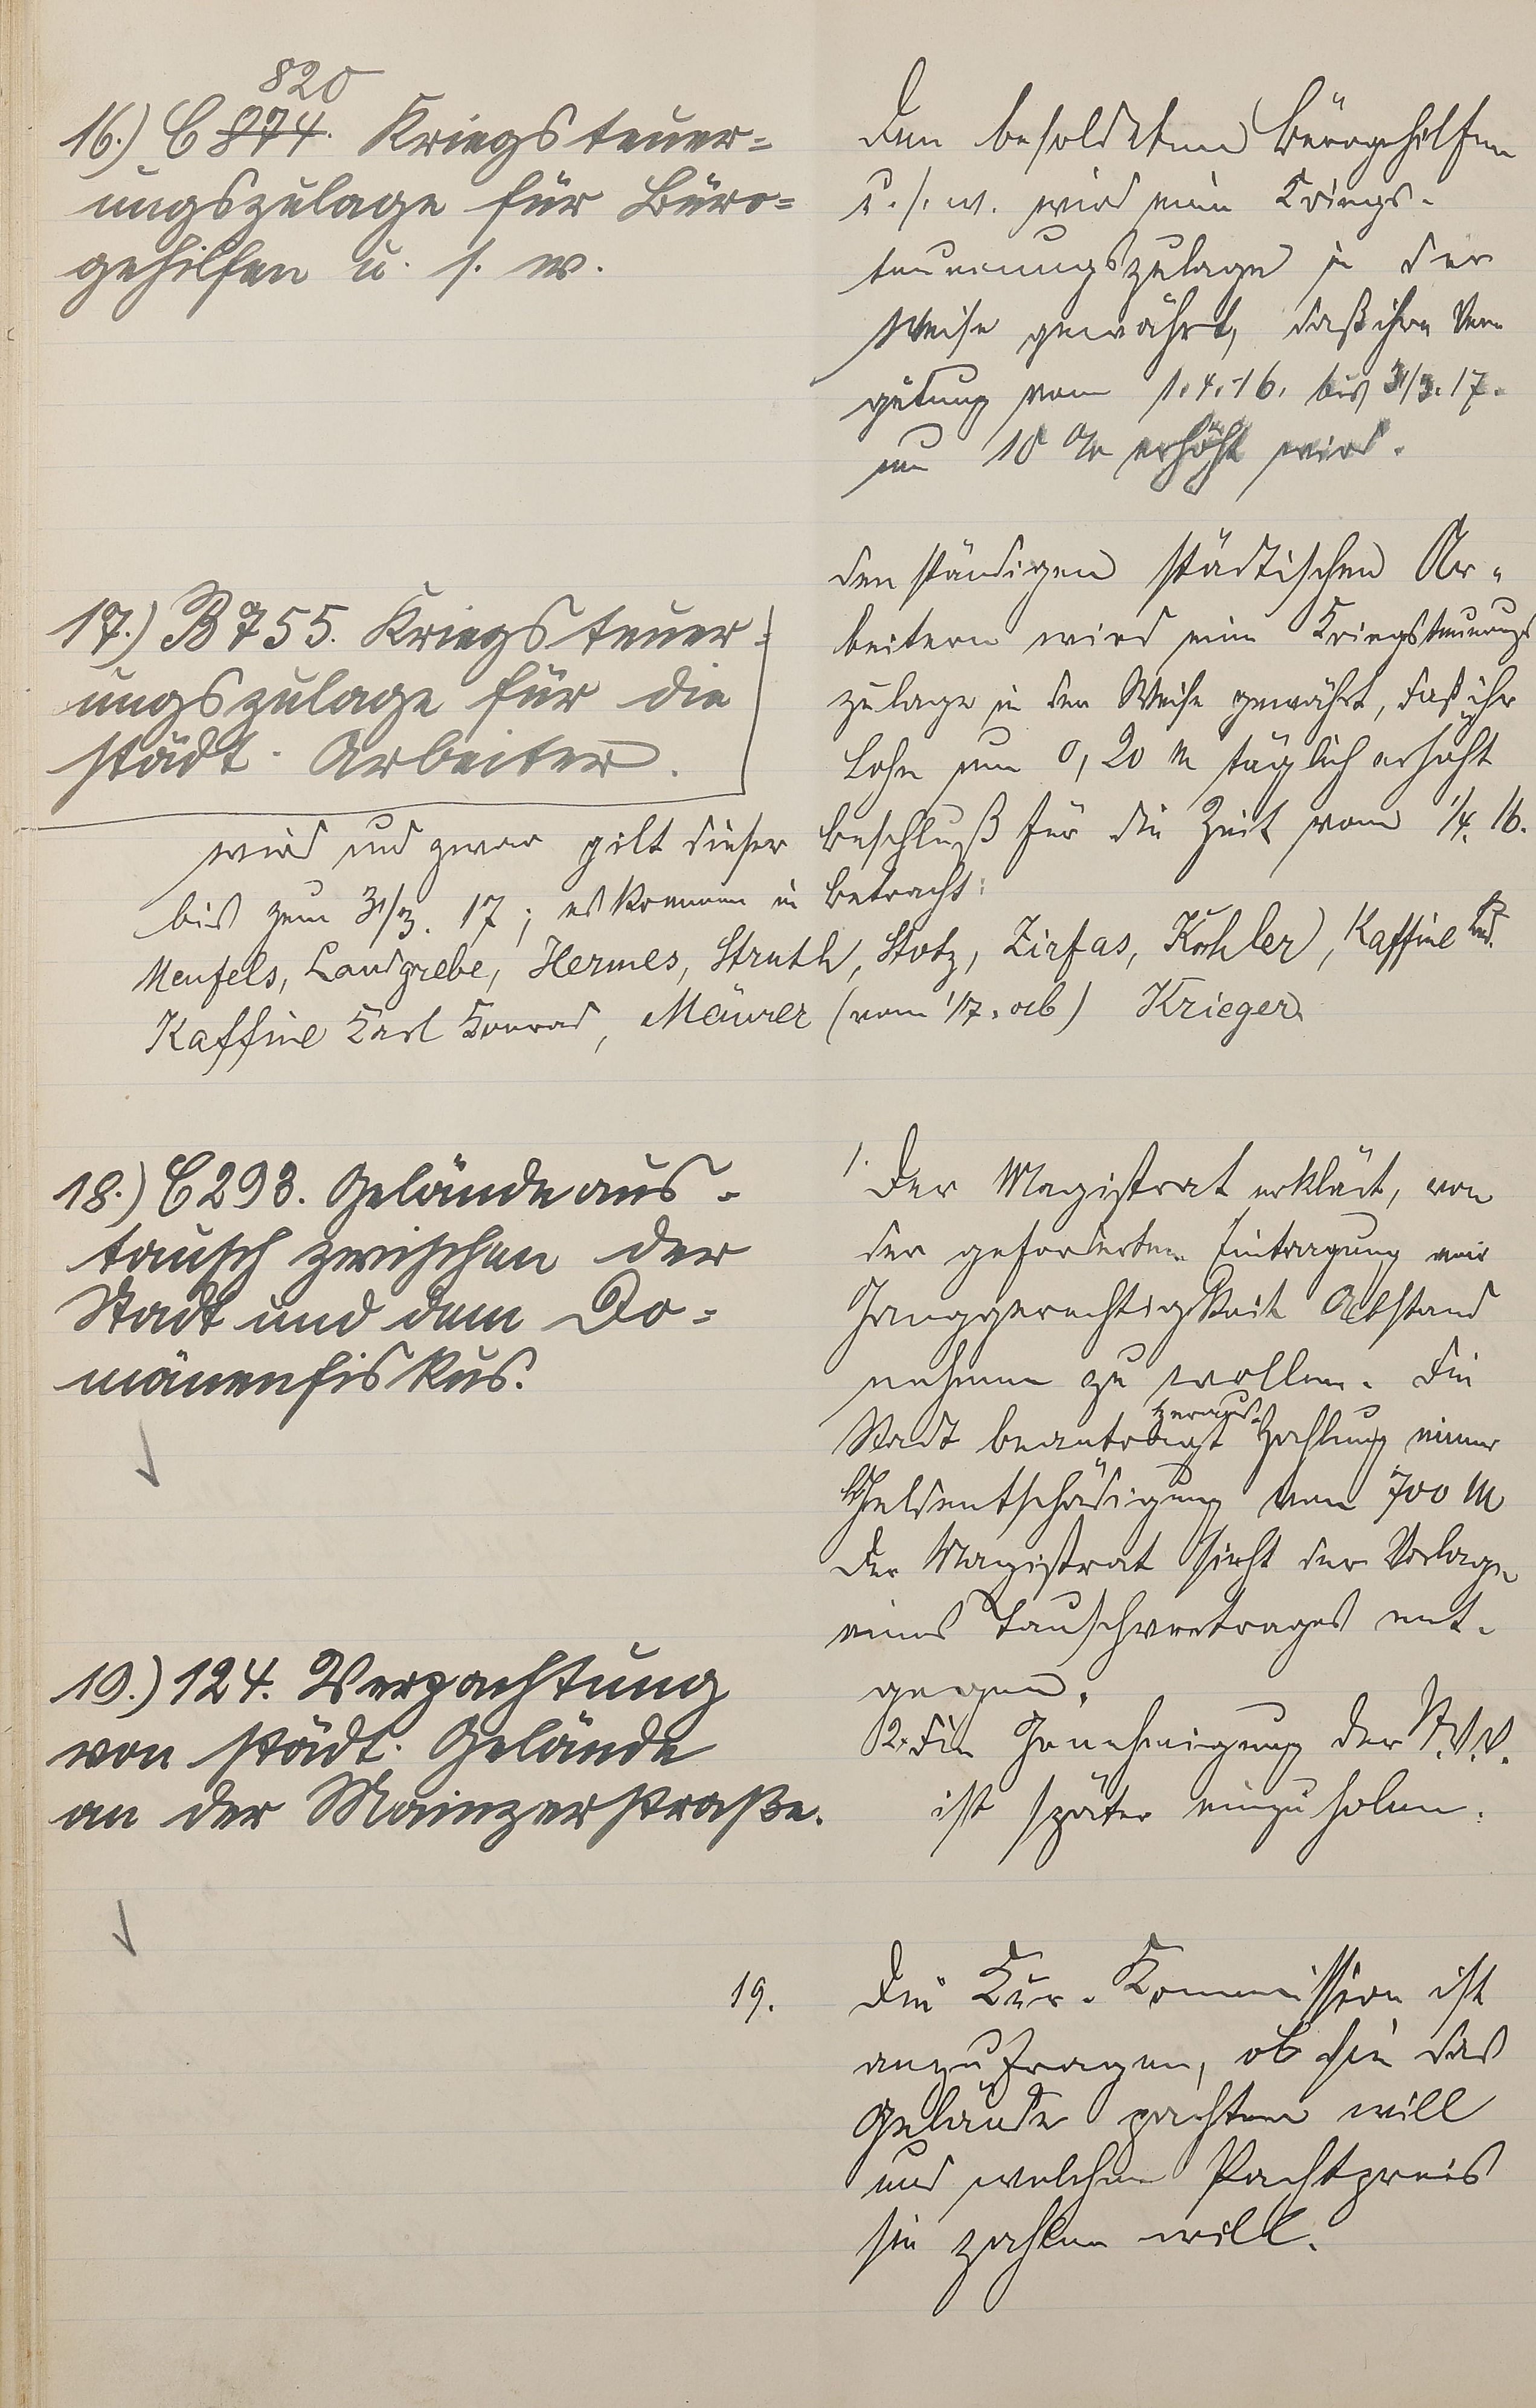 820
16.) C 874. Kriegsteuer=
ungszulage für Büro=
gehilfen u. s. w.
Den besoldeten Bürogehilfen
u. s. w. wird eine Kriegs-
teuerungszulage in der
Weise gewährt, daß ihre Ver
gütung vom 1.4.16. bis 31/3.17.
um 10 % erhöht wird.
17.) B 755. Kriegsteuer-
ungszulage für die
städt. Arbeiter.
Den ständigen städtischen Ar-
beitern wird eine Kriegsteuerungs
zulage in der Weise gewährt, daß ihr
Lohn um 0,20 M täglich erhöht
wird und zwar gilt dieser Beschluß für die Zeit vom 1/4. 16.
bis zum 31/3. 17; es kommen in Betracht:
Menfels, Landgrebe, Hermes, Struth, Stotz, Zirfas, Köhler, Kaffine
Kaffine Karl Konrad, Mäurer (vom 1/7. ab) Krieger
18.) C 293. Geländeaus-
tausch zwischen der
Stadt und dem Do=
mänenfiskus.
1. Der Magistrat erklärt, von
der geforderten Eintragung einer
Zanggerechtigkeit Abstand
nehmen zu wollen. Die
Stadt beantragt Heraus-Zahlung einer
Geldentschädigung von 700 M
Der Magistrat sieht der Vorlage
eines Tauschvertrages ent-
gegen.
2. Die Genehmigung der St.V.V.
ist später einzuholen.
19.) 124. Verpachtung
von städt. Gelände
an der Mainzerstraße.
19. Die Kur-Kommission ist
anzufragen, ob sie das
Gelände pachten will
und welchen Pachtpreis
sie zahlen will.